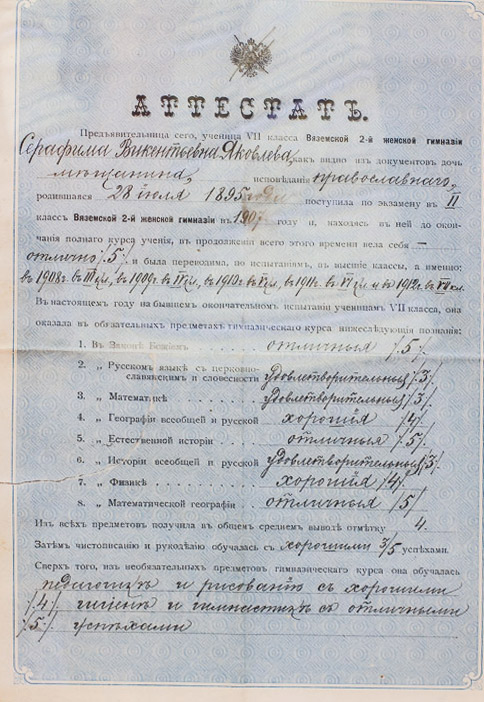 АТТЕСТАТЪ.
Предъявительница сего, ученица VII класса Вяземской 2-й женской гимназіи
Серафима Викентьевна Яковлева, какъ видно изъ документовъ дочь
мѣщанина, исповѣданія православнаго,
родившаяся 28 іюля 1895 года поступила по экзамену въ II
классъ Вяземской 2-й женской гимназіи въ 1907 году и, находясь въ ней до окон-
чанія полнаго курса ученія, въ продолженіи всего этого времени вела себя —
отлично /.5./ и была переводима, по испытаніямъ, въ высшіе классы, а именно:
въ 1908 г. въ III кл., въ 1909 г. въ IV кл., въ 1910 г. въ V кл., въ 1911 г. въ VI кл. и въ 1912 г. въ VII кл.
Въ настоящемъ году на бывшемъ окончательномъ испытаніи ученицамъ VII класса, она
оказала въ обязательныхъ предметахъ гимназическаго курса нижеслѣдующія познанія:
1. Въ Законѣ Божіемъ . . . . . . отличныя /.5./
2. „ Русскомъ языкѣ съ церковно-
славянскимъ и словесности удовлетворительныя /.3./
3. „ Математикѣ . . . . удовлетворительныя /.3./
4. „ Географіи всеобщей и русской хорошія /4/
5. „ Естественной исторіи . . . . отличныя /.5./
6. „ Исторіи всеобщей и русской удовлетворительныя /.3./
7. „ Физикѣ . . . . . хорошія /4./
8. „ Математической географіи . отличныя /5/
Изъ всѣхъ предметовъ получила въ общемъ среднемъ выводѣ отмѣтку 4.
Затѣмъ чистописанію и рукодѣлію обучалась съ хорошими 3/5 успѣхами.
Сверхъ того, изъ необязательныхъ предметовъ гимназическаго курса она обучалась
педагогикѣ и рисованію съ хорошими
/.4./, гигіенѣ и гимнастикѣ съ отличными
/.5./ успѣхами